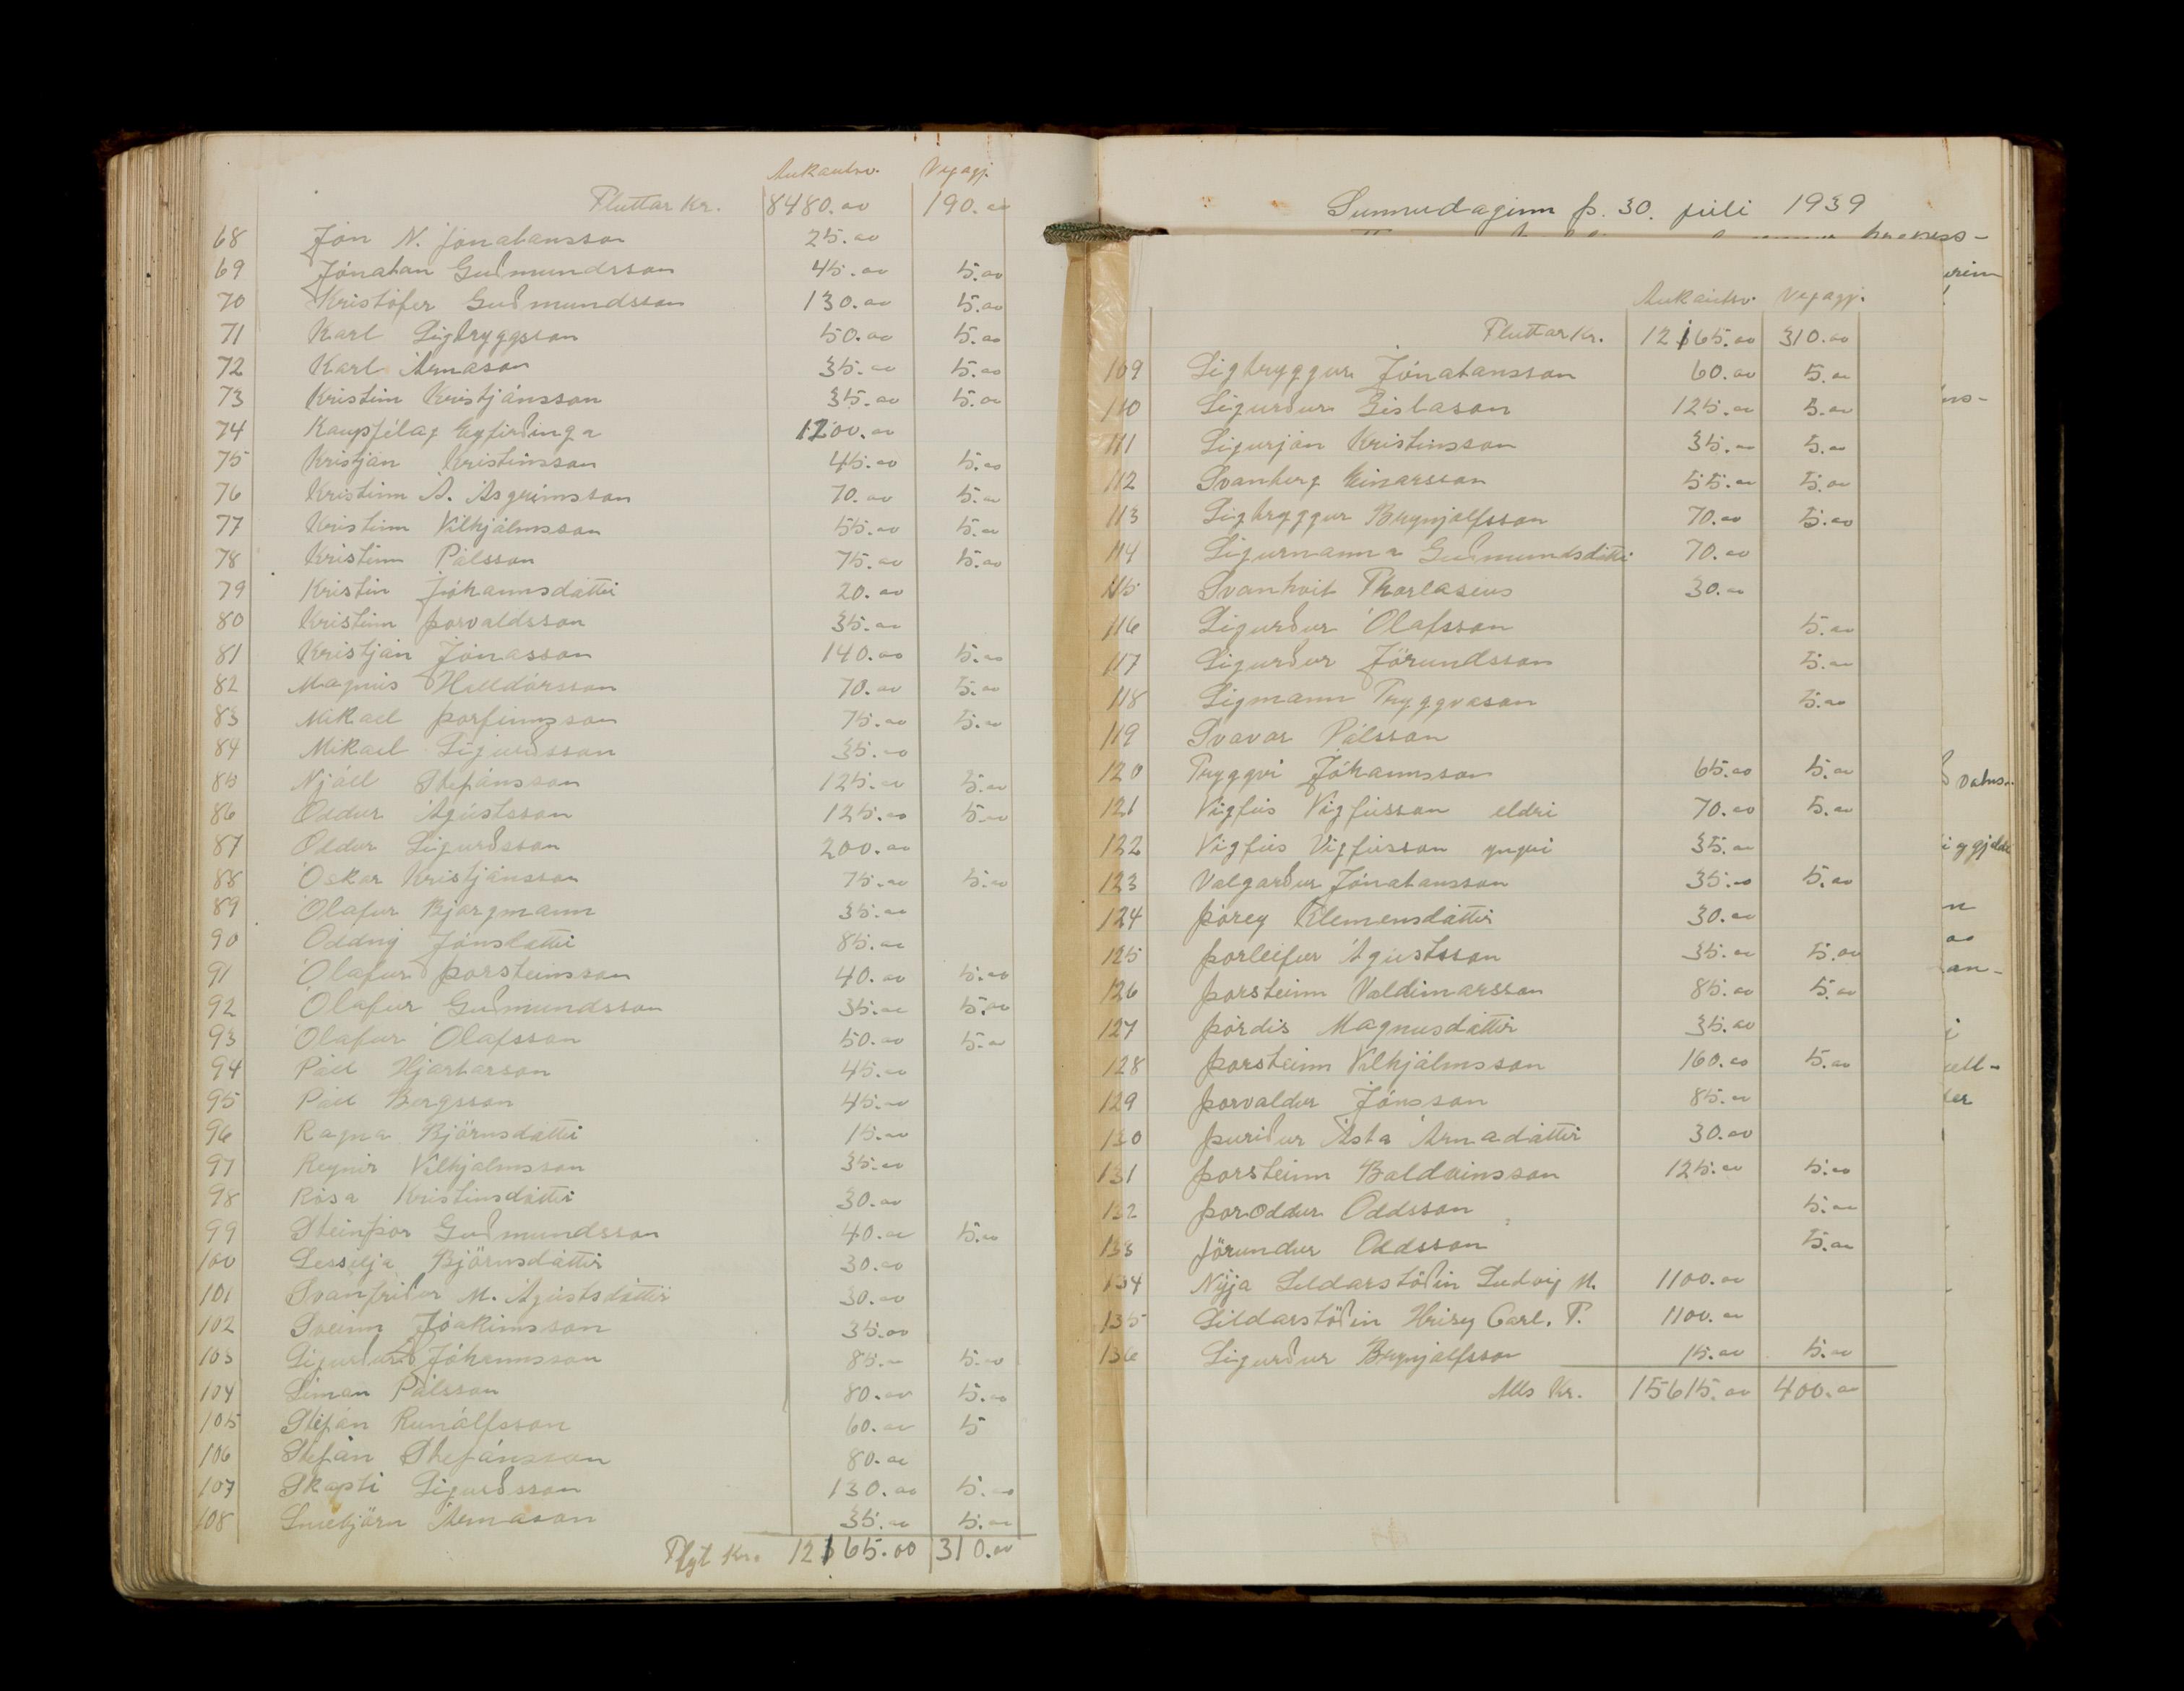 Aukaútsv. Vegagj.
Fluttar Kr. 8480.00 190.00
68 Jón N. Jónatansson 25.00
69 Jónatan Guðmundsson 45.00 5.00
70 Kristófer Guðmundsson 130.00 5.00
71 Karl Sigtryggsson 50.00 5.00
72 Karl Árnason 35.00 5.00
73 Kristinn Kristjánsson 35.00 5.00
74 Kaupfélag Eyfirðinga 1200.00
75 Kristján Kristinsson 45.00 5.00
76 Kristinn Á. Ásgrímsson 70.00 5.00
77 Kristinn Vilhjálmsson 55.00 5.00
78 Kristinn Pálsson 75.00 5.00
79 Kristín Jóhannsdóttir 20.00
80 Kristinn Þorvaldsson 35.00
81 Kristján Jónasson 140.00 5.00
82 Magnús Halldórsson 70.00 5.00
83 Mikael Þorfinnsson 75.00 5.00
84 Mikael Sigurðsson 35.00
85 Njáll Stefánsson 125.00 5.00
86 Oddur Ágústsson 125.00 5.00
87 Oddur Sigurðsson 200.00
88 Óskar Kristjánsson 75.00 5.00
89 Ólafur Bjargmann 35.00
90 Oddný Jónsdóttir 85.00
91 Ólafur Þorsteinsson 40.00 5.00
92 Ólafur Guðmundsson 35.00 5.00
93 Ólafur Ólafsson 50.00 5.00
94 Páll Hjartarson 45.00
95 Páll Bergsson 45.00
96 Ragna Björnsdóttir 15.00
97 Reynir Vilhjalmsson 35.00
98 Rósa Kristinsdóttir 30.00
99 Steinþór Guðmundsson 40.00 5.00
100 Sessilja Björnsdóttir 30.00
101 Svanfríður M. Ágústsdóttir 30.00
102 Sveinn Jóakimsson 35.00
103 Sigurður Jóhannsson 85.00 5.00
104 Símon Pálsson 80.00 5.00
105 Stefán Runólfsson 60.00 5
106 Stefán Stefánsson 80.00
107 Skapti Sigurðsson 130.00 5.00
108 Snæbjörn Árnason 35.00 5.00
Flyt Kr. 12165.00 310.00
Sunnudaginn þ. 30. júlí 1939
Aukaútsv. Vegagj.
Fluttar Kr. 12165.00 310.00
109 Sigtryggur Jónatansson 60.00 5.00
110 Sigurður Gíslason 125.00 5.00
111 Sigurjón Kristinsson 35.00 5.00
112 Svanberg Einarsson 55.00 5.00
113 Sigtryggur Brynjólfsson 70.00 5.00
114 Sigurmanna Guðmundsdóttir 70.00
115 Svanhvít Thorlasius 30.00
116 Sigurður Ólafsson 5.00
117 Sigurður Jörundsson 5.00
118 Sigmann Tryggvason 5.00
119 Svavar Pálsson
120 Tryggvi Jóhannsson 65.00 5.00
121 Vigfús Vigfússon eldri 70.00 5.00
122 Vigfús Vigfússon yngri 35.00
123 Valgarður Jónatansson 35.00 5.00
124 Þórey Klemensdóttir 30.00
125 Þorleifur Ágústsson 35.00 5.00
126 Þorsteinn Valdimarsson 85.00 5.00
127 Þórdís Magnusdóttir 35.00
128 Þorsteinn Vilhjálmsson 160.00 5.00
129 Þorvaldur Jónsson 85.00
130 Þuríður Ásta Árnadóttir 30.00
131 Þorsteinn Baldvinsson 125.00 5.00
132 Þoroddur Oddsson 5.00
133 Jörundur Oddsson 5.00
134 Nýja Síldarstöðin Ludvig M. 1100.00
135 Síldarstöðin Hrísey Carl. T. 1100.00
136 Sigurður Brynjólfsson 15.00 5.00
Alls Kr. 15615.00 400.00